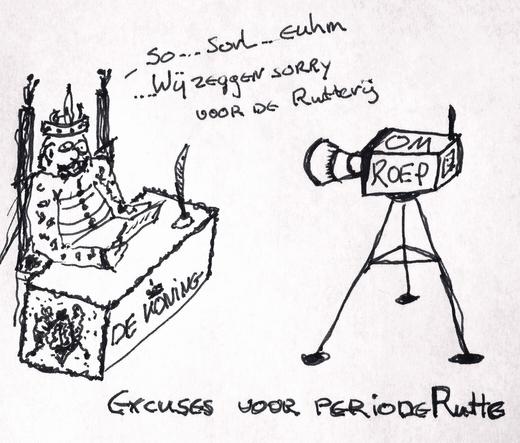 So... Sorl... Euhm
...Wij zeggen sorry
voor de Rutterij
OM
ROEP
DE KONING
Excuses voor periode Rutte